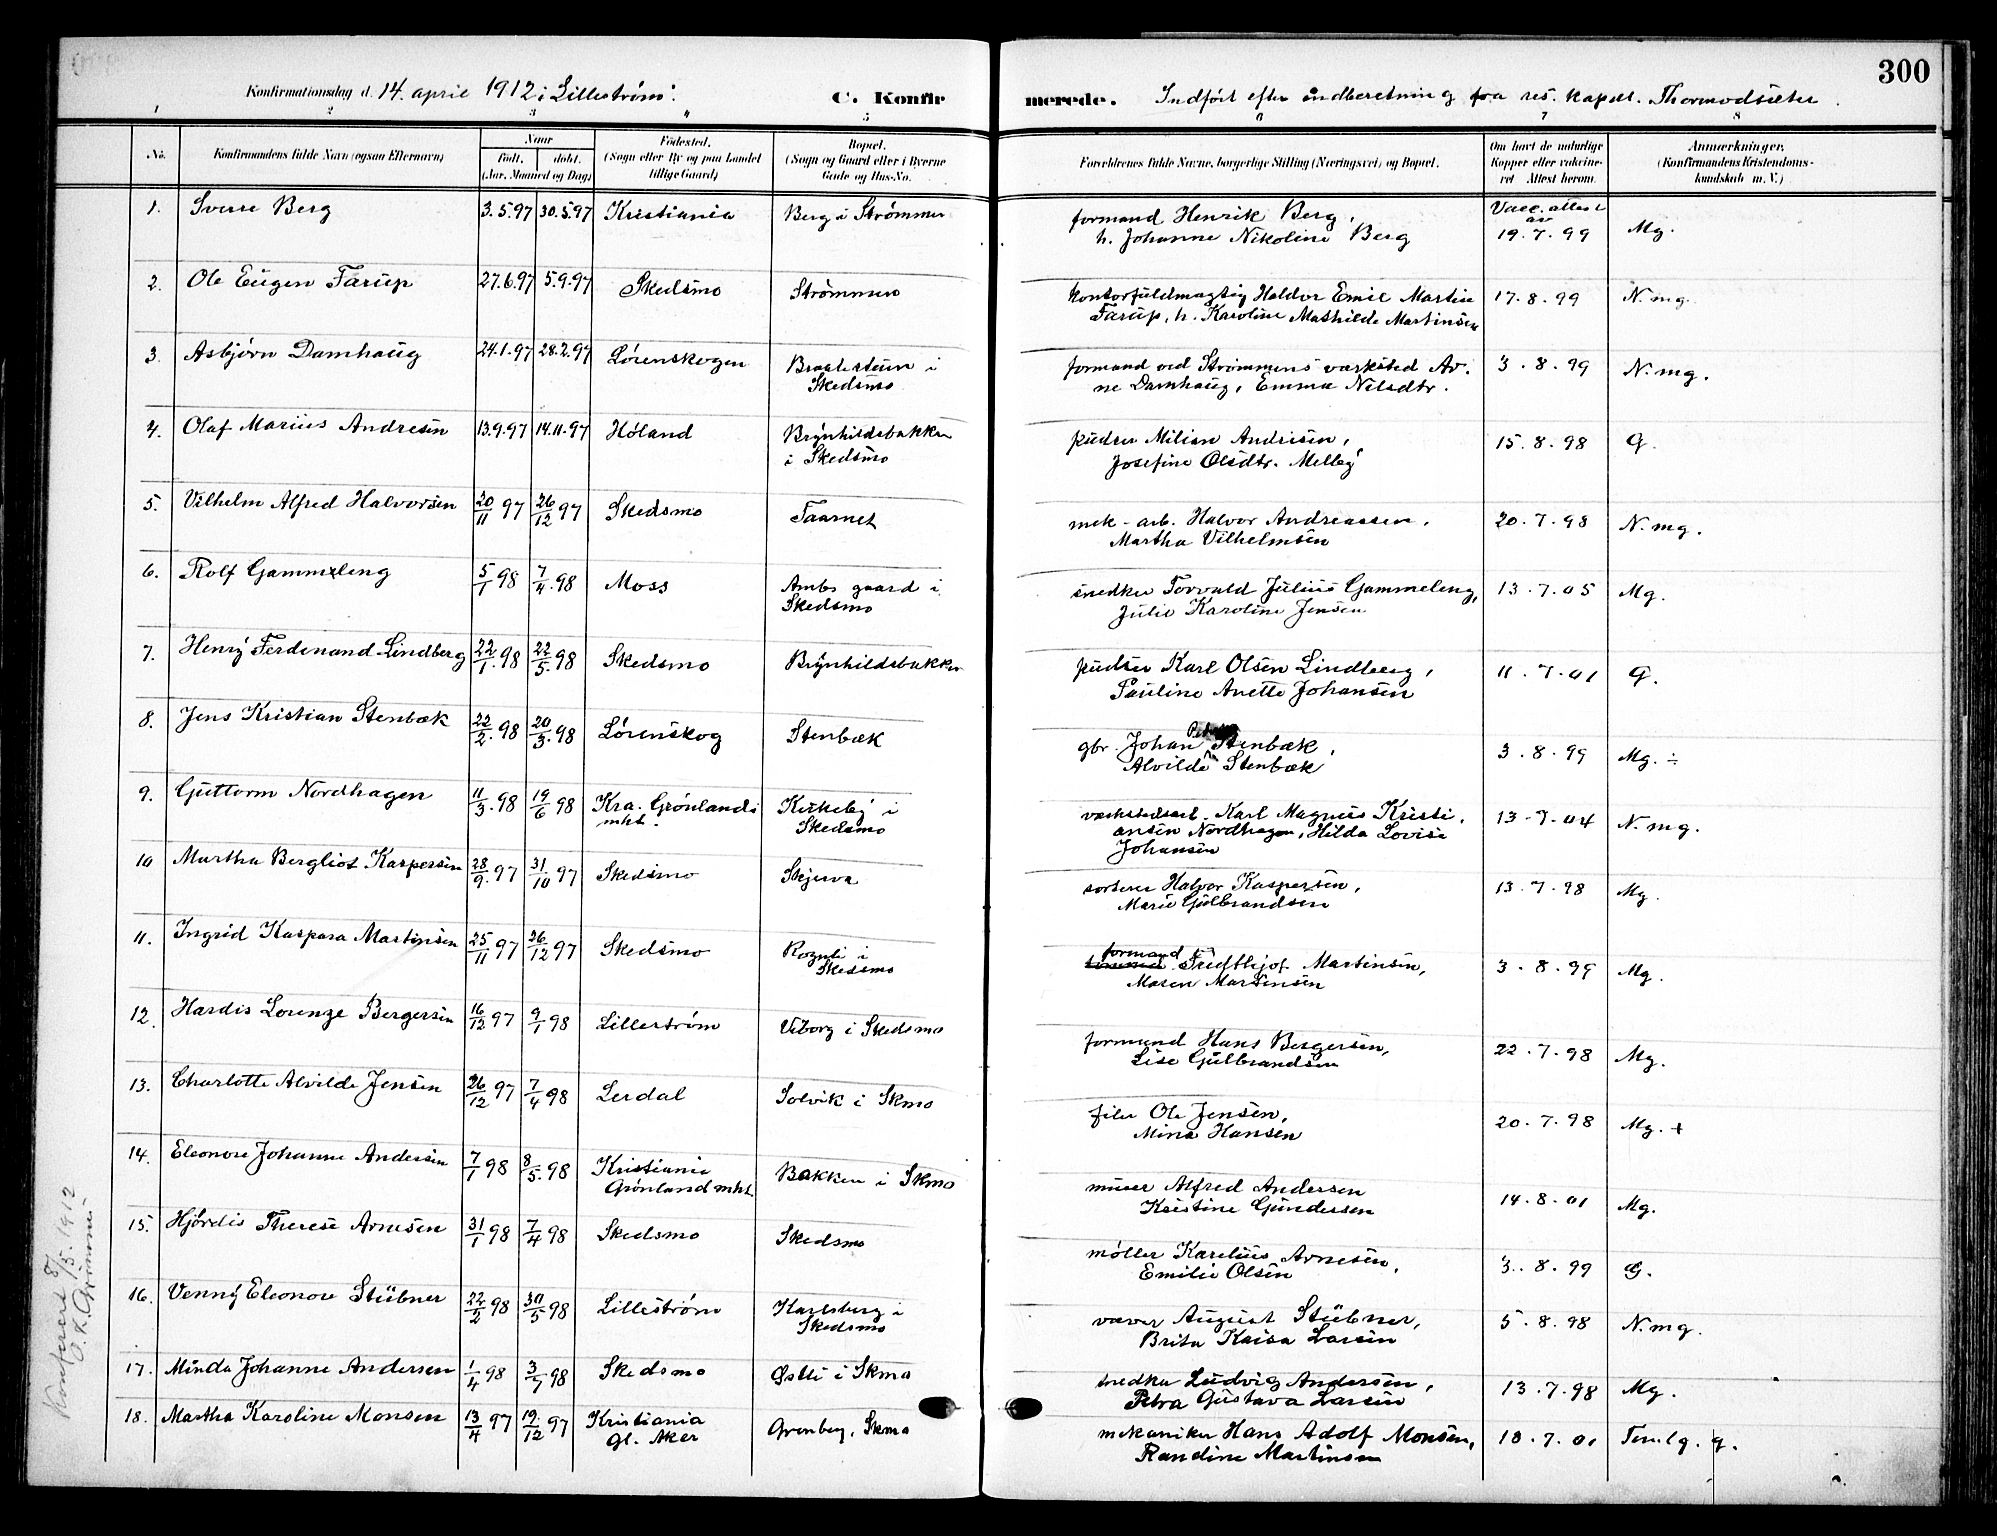 300
Konfirmationsdag d. 14. april 1912 i Lillestrøm.
C. Konfirmerede. Indført efter indberetning fra res. kapel. Thormodsæter.
1 2 3 4 5 6 7 8
No. Konfirmandens fulde Navn (ogsaa Efternavn) Naar født, døbt. (Aar, Maaned og Dag) Fødested. (Sogn eller By og paa Landet tillige Gaard) Bopæl. (Sogn og Gaard eller i Byerne Gade og Hus-No. Forældrenes fulde Navne, borgerlige Stilling (Næringsvei) og Bopæl. Om havt de naturlige Kopper eller vakcineret Attest herom. Anmærkninger. (Konfirmandens Kristendomskundskab m. V.)
1. Sverre Berg 3.5.97 30.5.97 Kristiania Berg i Strømmen formand Henrik Berg, h. Johanne Nikoline Berg Vacc. attest av 19.7.99 Mg.
2. Ole Eugen Farup 27.6.97 5.9.97 Skedsmo Strømmen kontorfuldmægtig Haldor Emil Martin Farup, h. Karoline Mathilde Martinsen 17.8.99 N.mg.
3. Asbjørn Damhaug 24.1.97 28.2.97 Lørenskogen i Skedsmo formand ved Strømmens værksted Arne Damhaug, Emma Nilsdtr. 3.8.99 N.mg.
4. Olaf Marius Andresen 13.9.97 14.11.97 Høland Brynhildsbakken i Skedsmo pudser Milian Andresen, Josefine Olsdtr. Melleg 15.8.98 G.
5. Vilhelm Alfred Halvorsen 20/11 97 26/12 97 Skedsmo Taarnet mek-arb. Halvor Andreassen, Martha Vilhelmsen 20.7.98 N.mg.
6. Rolf Gammeleng 5/1 98 7/4.98 Moss Ambs gaard i Skedsmo snedker Torvald Julius Gammeleng, Julie Karoline Jensen 13.7.05 Mg.
7. Henry Ferdinand Lindberg 22/1.98 22/5.98 Skedsmo Brynhildsbakken pudser Karl Olsen Lindberg, Pauline Anette Johansen 11.7.01 G.
8. Jens Kristian Stenbæk 22/2.98 20/3.98 Lørenskog Stenbæk gbr. Johan Stenbæk, Alvilde Stenbæk 3.8.99 Mg. ÷
9. Guttorm Nordhagen 11/3.98 19/6 98 Kra. Grønlands mht. Kirkeby i Skedsmo verkstedsarb. Karl Magnus Kristiansen Nordhagen, Hilda Lovise Johansen 13.7.04 N.mg.
10 Martha Bergliot Kaspersen 28/9.97 31/10 97 Skedsmo Skjerva sorterer Halvor Kaspersen, Marie Gulbrandsen 13.7.98 Mg.
11. Ingrid Kaspara Martinsen 25/11 97 26/12 97 Skedsmo Rognli i Skedsmo formand Fridthjof Martinsen, Maren Martinsen 3.8.99 Mg.
12. Hardis Lorenze Bergersen 16/12 97 9/1 98 Lillestrøm Viborg i Skedsmo formand Hans Bergersen, Lise Gulbrandsen 22.7.98 Mg.
13. Charlotte Alvilde Jensen 26/12 97 7/4 98 Lerdal Solvik i Skmo filer Ole Jensen, Mina Hansen 20.7.98 Mg. +
14. Eleonore Johanne Andersen 7/1 98 8/5.98 Kristiania Grønland mht. Bakken i Skmo murer Alfred Andersen Kristine Gundersen 14.8.01 Mg.
15. Hjørdis Therese Arnesen 31/1 98 7/4 98 Skedsmo Skedsmo møller Karelius Arnesen, Emilie Olsen 3.8.99 G.
16. Venny Eleonore Stübner 22/2 98 30/5 98 Lillestrøm Karlsberg i Skedsmo væver August Stübner, Brita Kaisa Larsen 5.8.98 N.mg.
17. Minda Johanne Andersen 1/4 98 3/7 98 Skedsmo Østli i Skmo snedker Ludvig Andersen, Petra Gustava Larsen 13.7.98 Mg.
18. Martha Karoline Monsen 13/4 97 19/12 97 Kristiania gl. Aker Grenberg, Skmo mekaniker Hans Adolf Monsen, Randine Martinsen 18.7.01 Temlg. g.
Konfereret 8/5.1912